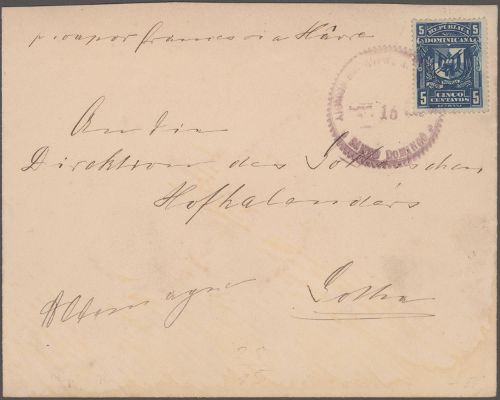 p vapor frances via Hâvre
5 REPUBLICA 5
DOMINICANA
5 CINCO 5
CENTAVOS
16
SANTO DOMINGO
An die
Direktion des Gothaischen
Hofkalenders
Allemagne Gotha